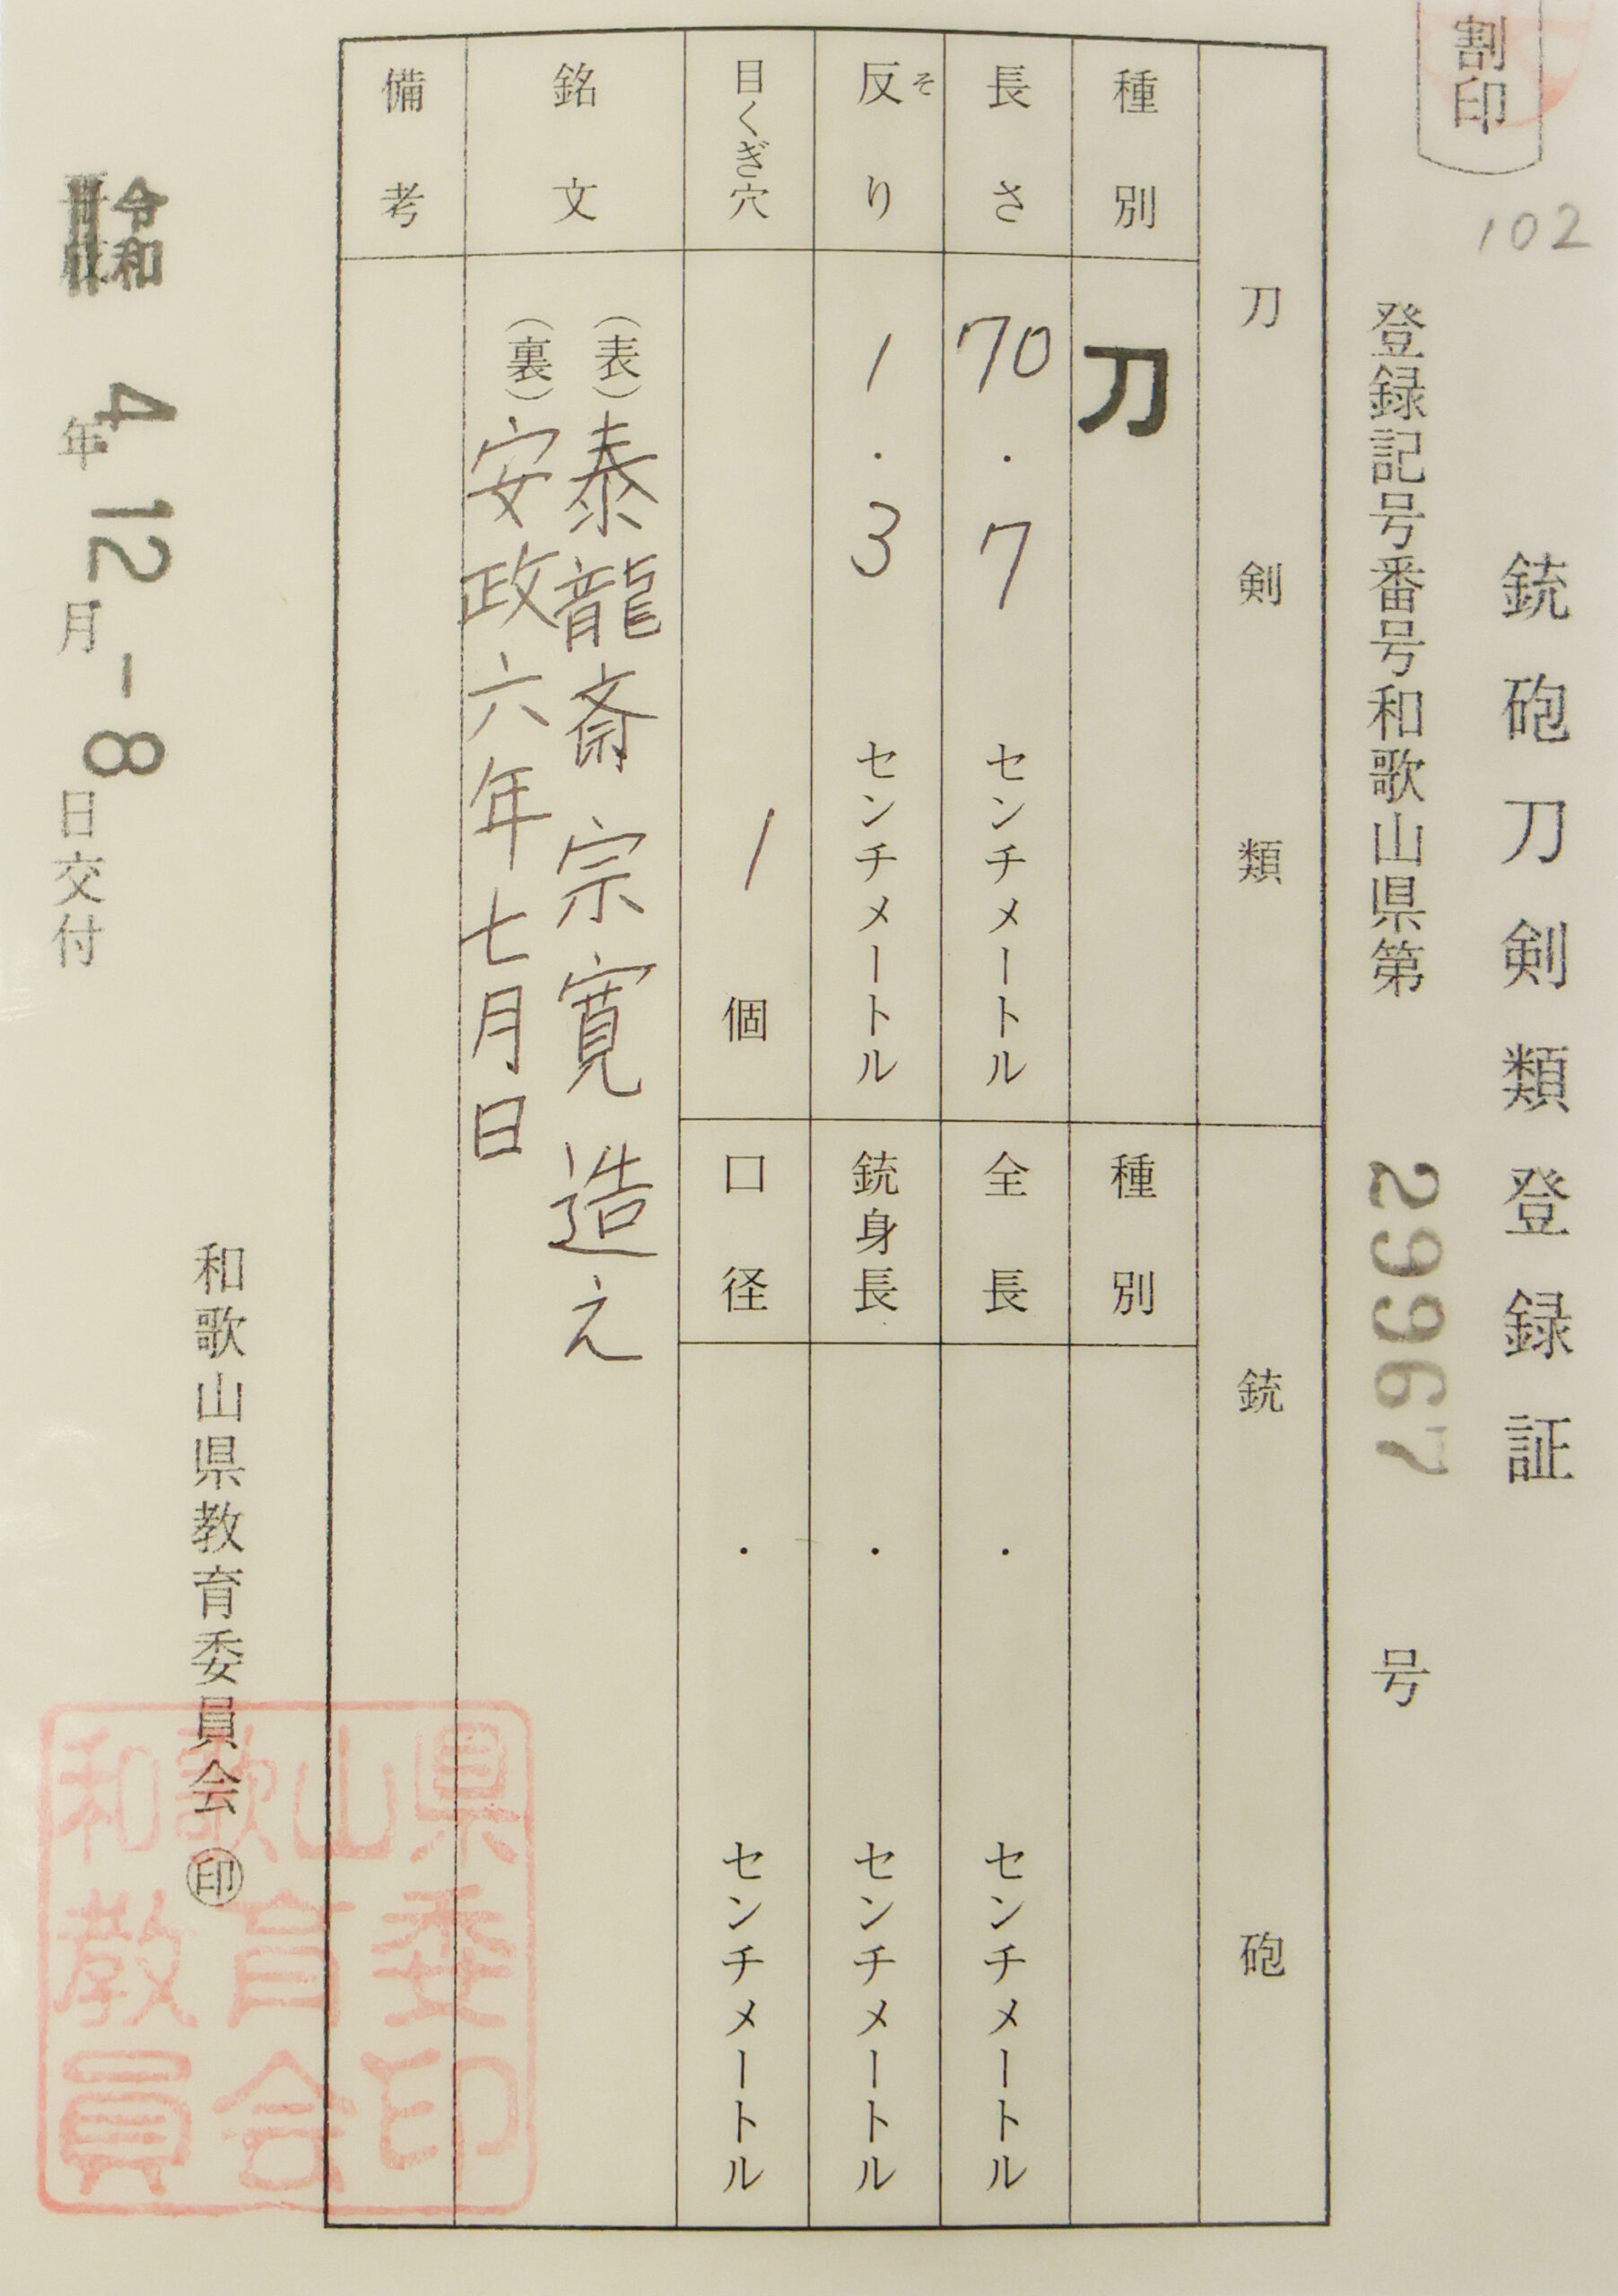 割印
102
銃砲刀剣類登録証
登録記号番号和歌山県第 29967 号
刀剣類
銃砲
種別
刀
種別
長さ
70.7 センチメートル
全長
・ センチメートル
反り
そ
1.3 センチメートル
銃身長
・ センチメートル
目くぎ穴
1 個
口径
・ センチメートル
銘文
(表)泰龍斎宗寛造之
(裏)安政六年七月日
備考
和歌山県教育委員会㊞
令和 4年12月-8日交付
和歌山県
教育委
員会印